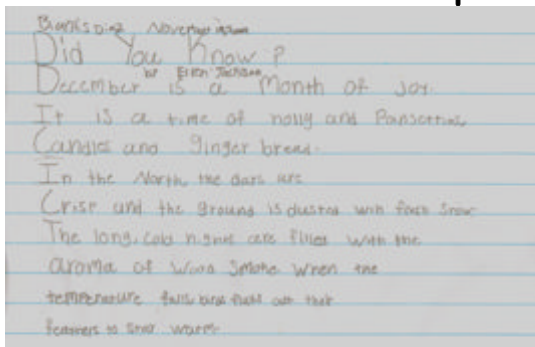 Did You Know?
by Ellen Jackson
December is a Month of Joy.
It is a time of holly and
Candles and ginger bread.
In the North, the days are
Crisp and the ground is dusted with fresh Snow
The long, cold nights are filled with the
aroma of Wood Smoke When the
temperature falls, birds fluff out their
feathers to stay warm.